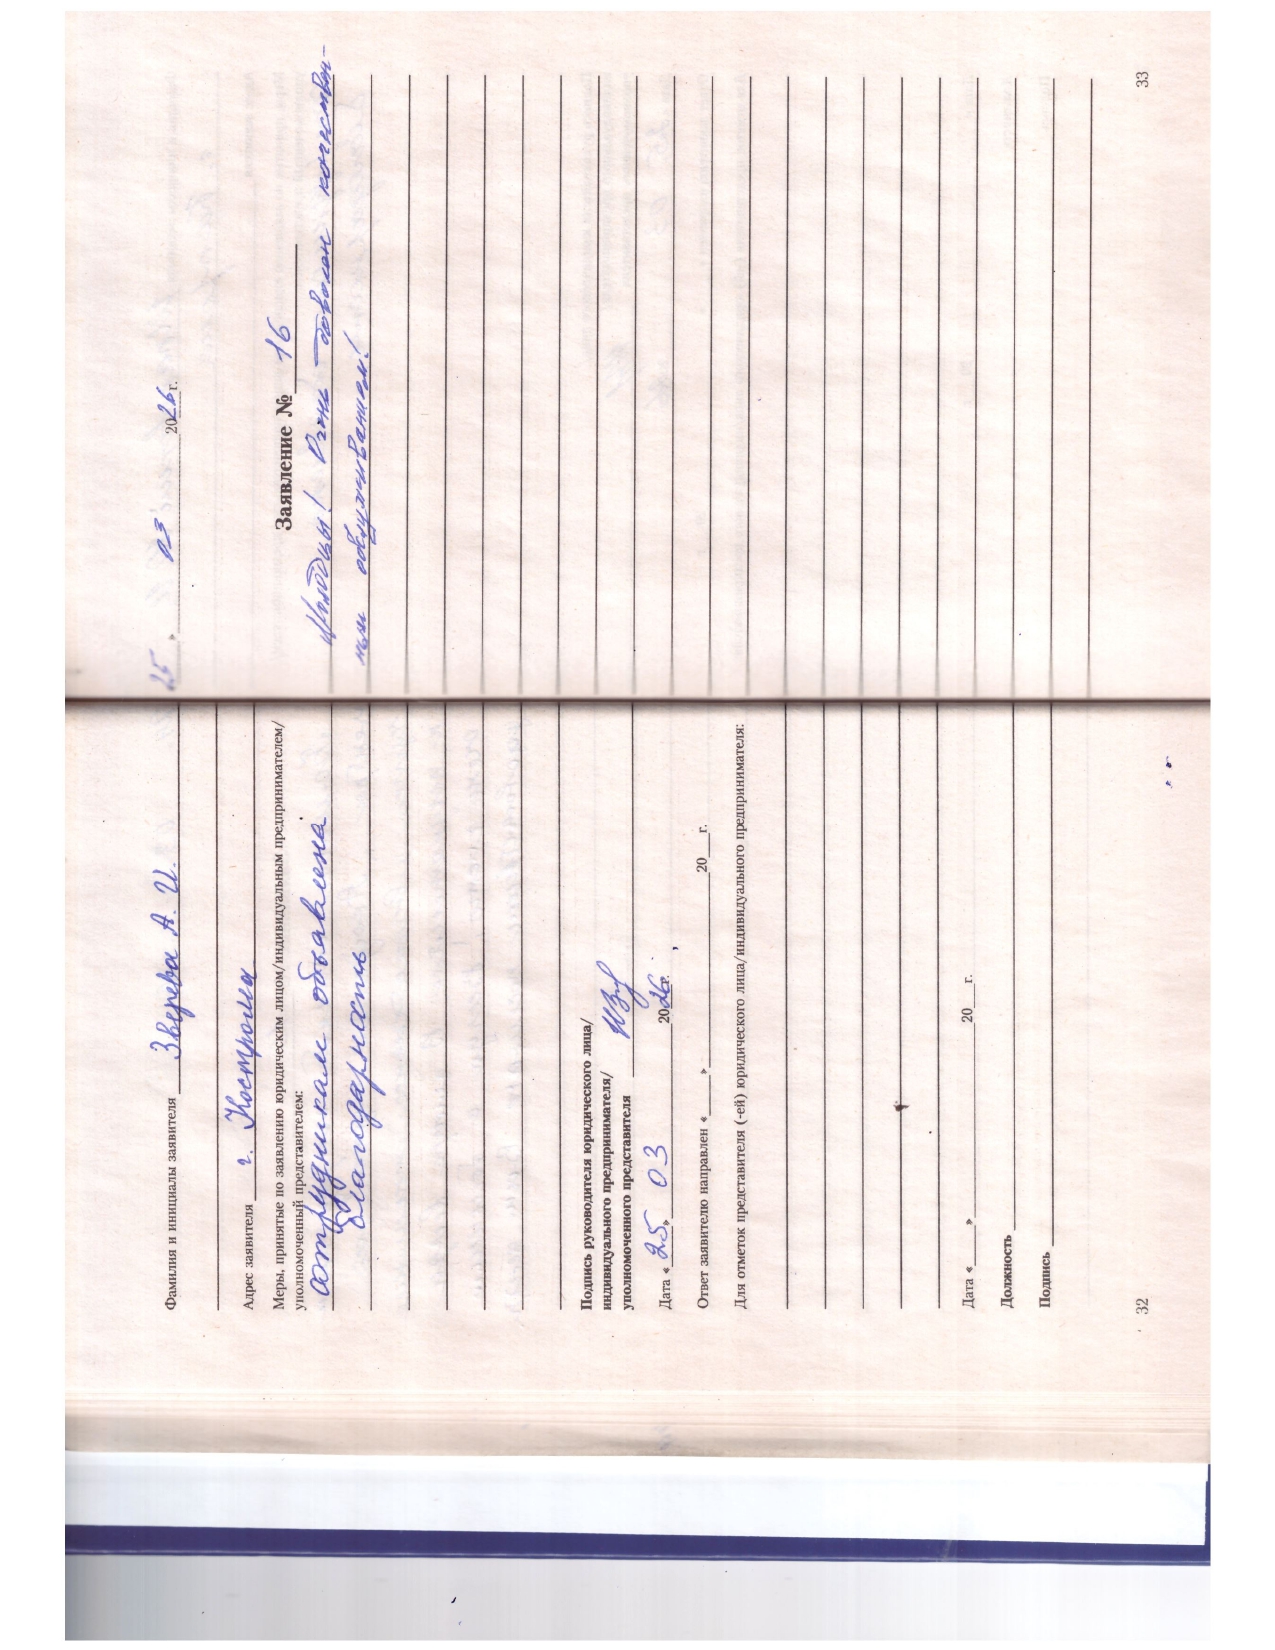 Фамилия и инициалы заявителя Зверева А. И.
Адрес заявителя г. Кострома
Меры, принятые по заявлению юридическим лицом/индивидуальным предпринимателем/
уполномоченный представителем:
сотрудникам объявлена
благодарность
Подпись руководителя юридического лица/
индивидуального предпринимателя/
уполномоченного представителя
Дата « 25 » 03 2026 г.
Ответ заявителю направлен «____»____________20___г.
Для отметок представителя (-ей) юридического лица/индивидуального предпринимателя:
Дата «____»____________20___г.
Должность
Подпись
32
25 » 03 2026 г.
Заявление № 16
Молодцы! Очень доволен качествен-
ным обслуживанием!
33